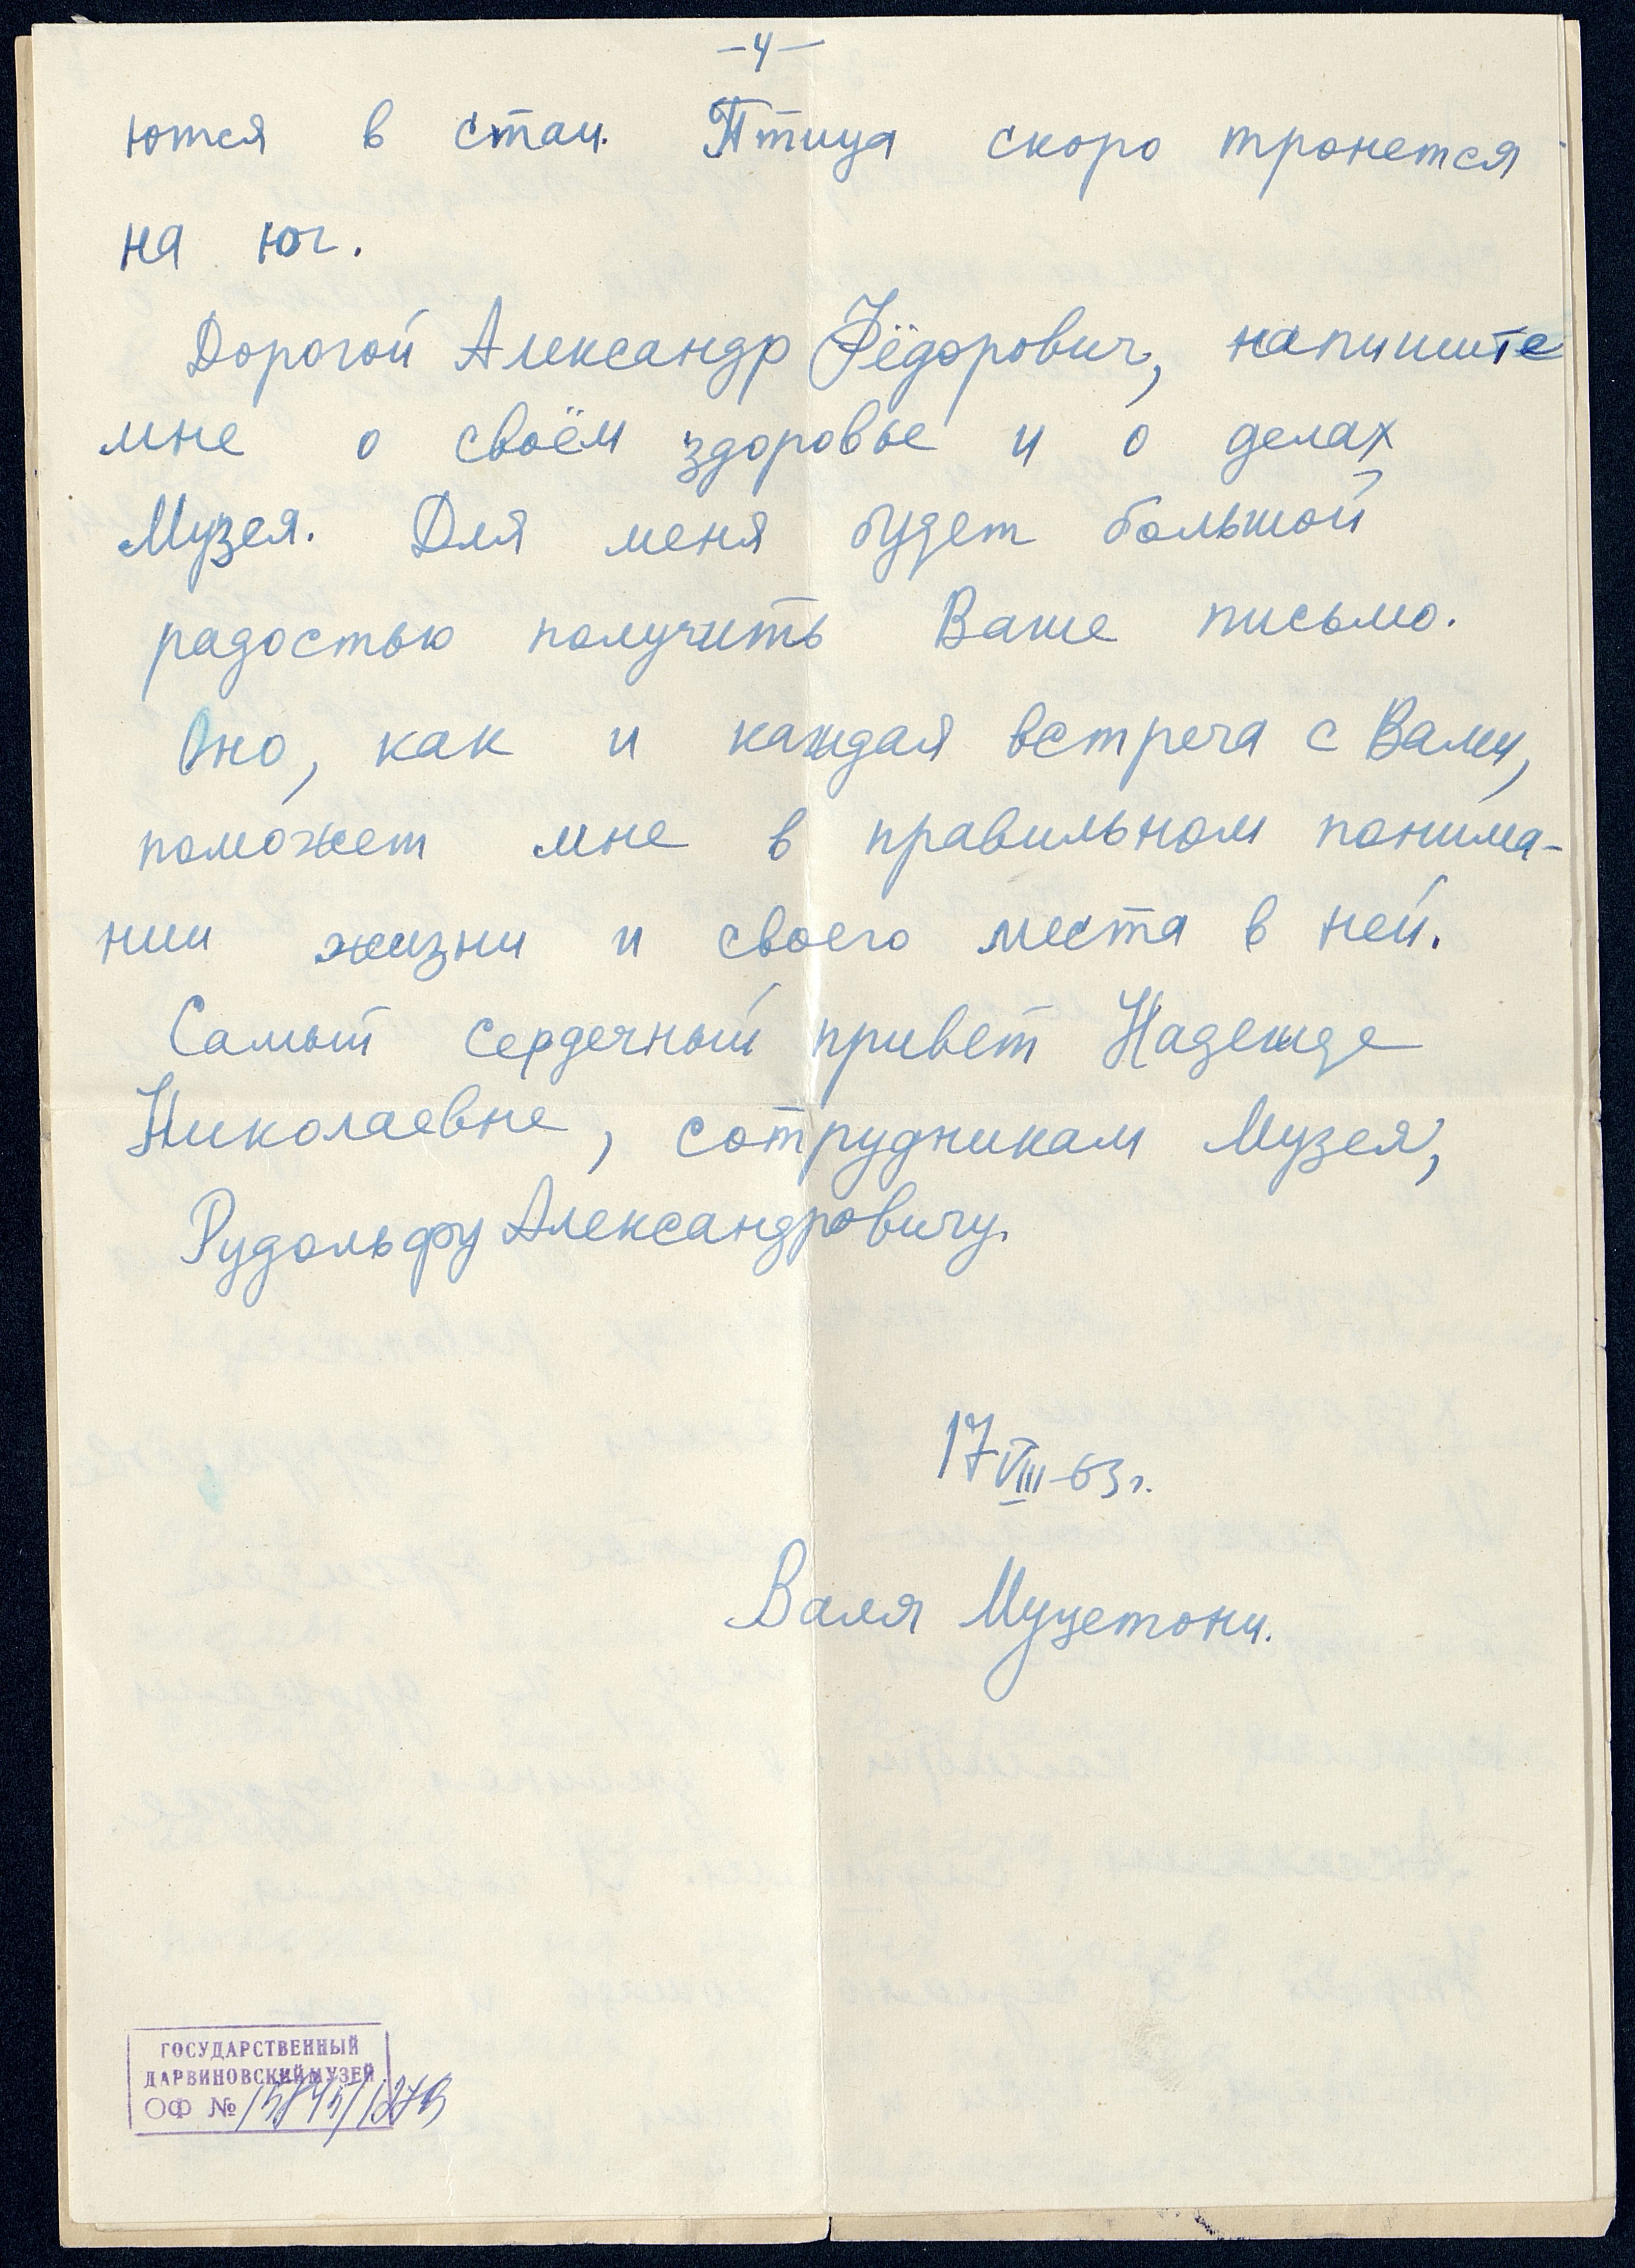 -4-
ются в стаи. Птица скоро тронется
на юг.
Дорогой Александр Фёдорович, напишите
мне о своём здоровье и о делах
Музея. Для меня будет большой
радостью получить Ваше письмо.
Оно, как и каждая встреча с Вами,
поможет мне в правильном понима-
нии жизни и своего места в ней.
Самый сердечный привет Надежде
Николаевне, сотрудникам Музея,
Рудольфу Александровичу.
17 VIII-63 г.
Валя Муцетони.
ГОСУДАРСТВЕННЫЙ
ДАРВИНОВСКИЙ МУЗЕЙ
ОФ №